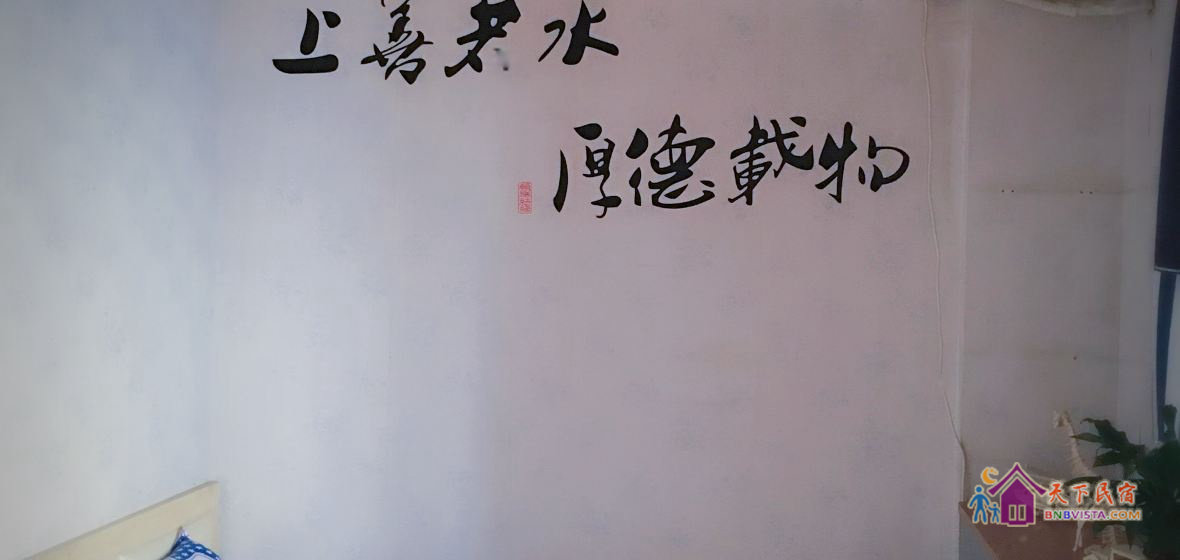 上善若水
厚德载物
天下民宿
BNBVISTA.COM